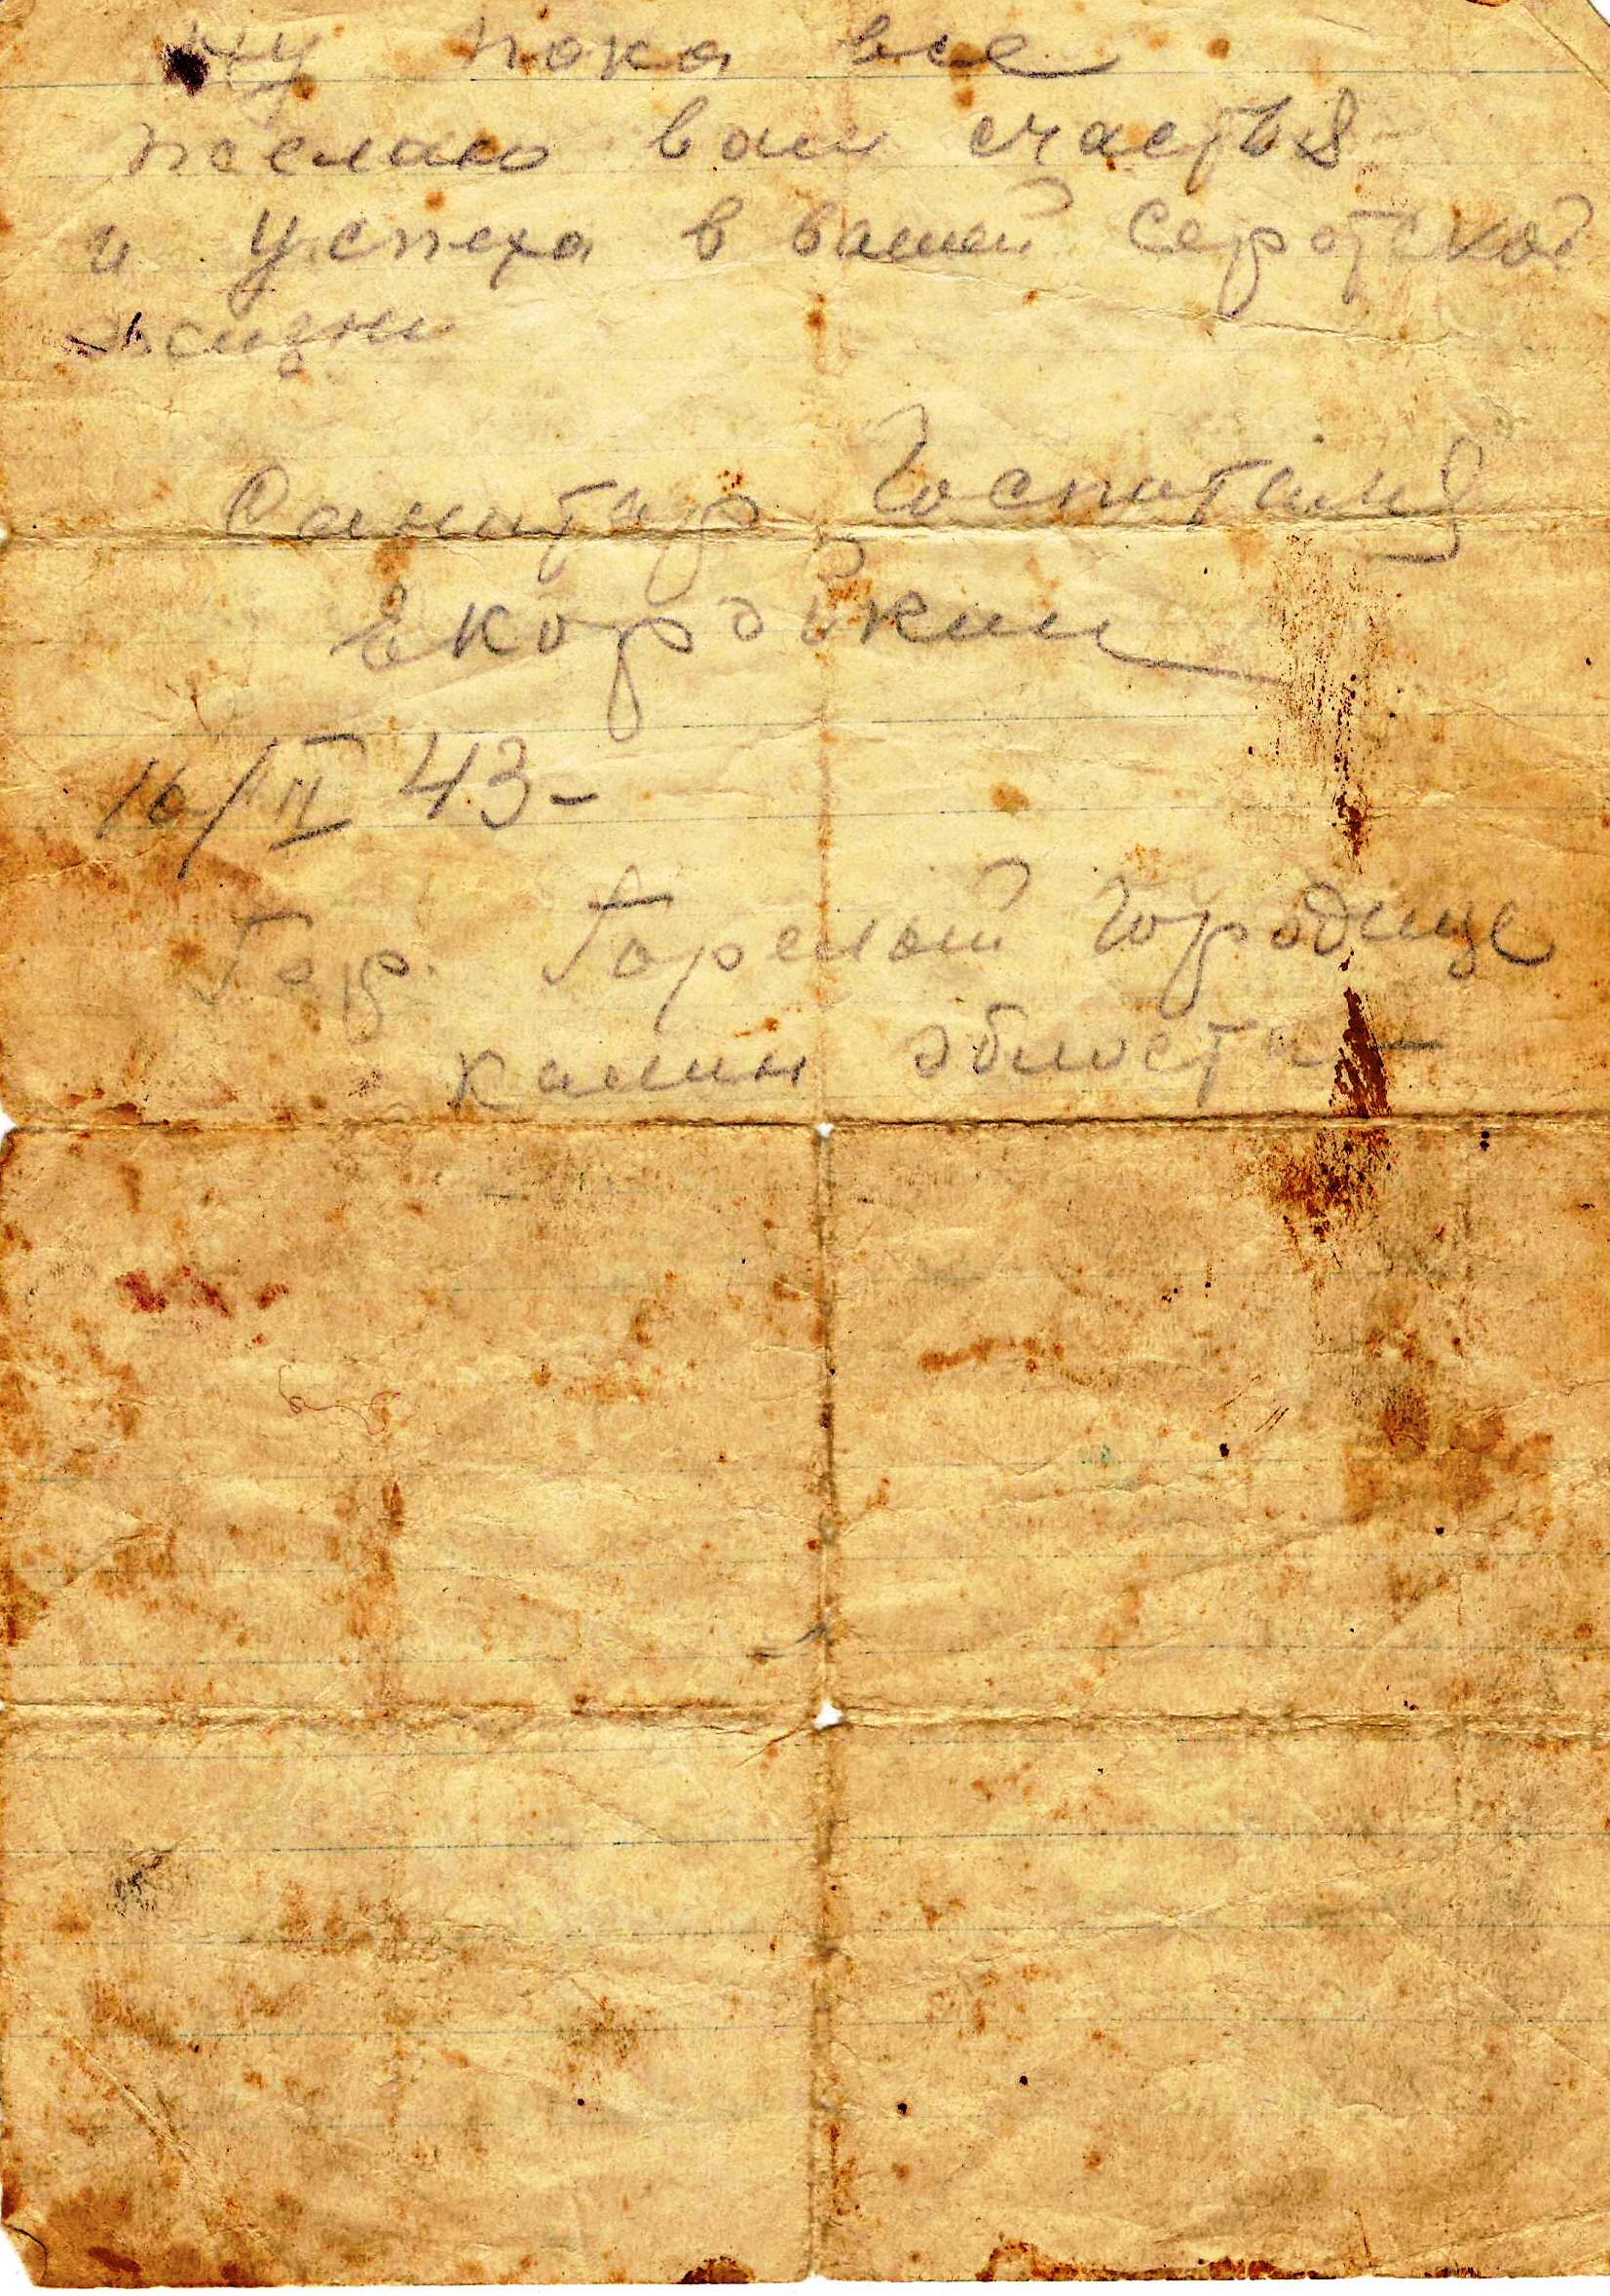 Ну пока все
желаю вам счастья
и успеха в вашей серотской
жизни
Санитар Госпиталя
16/II 43-
Гор. Горелой Городище
калин области-